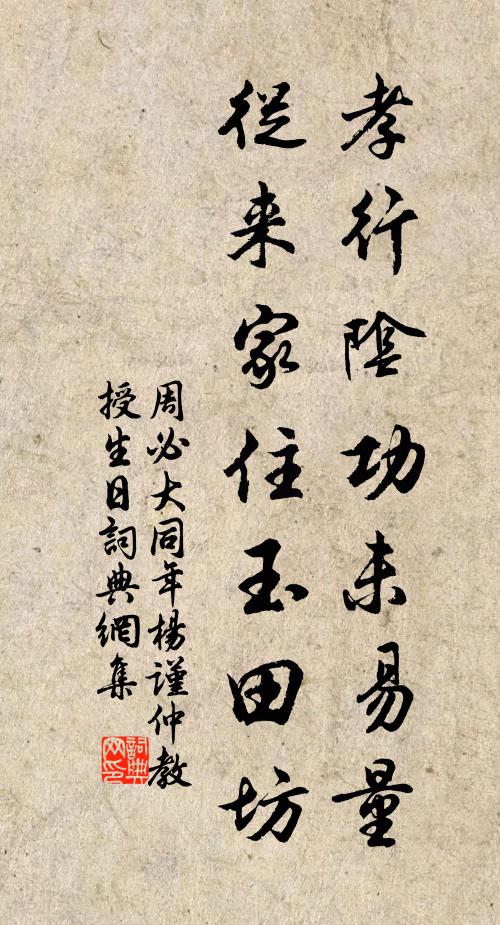 孝行陰功未易量
從来家住玉田坊
周必大同年楊謹仲教
授生日詞典網集
詞典
网印